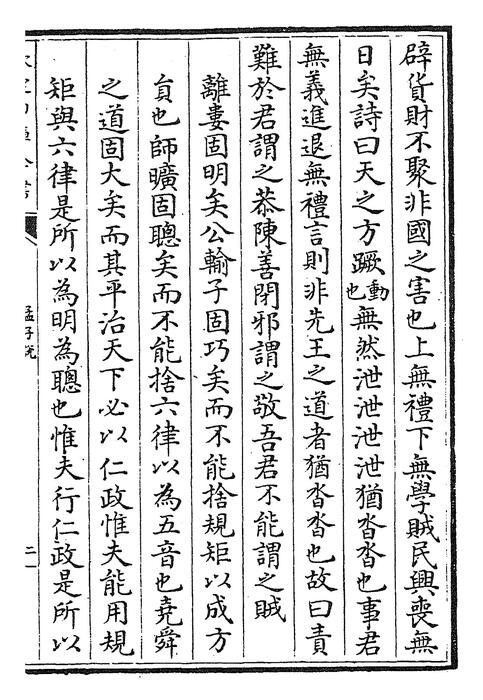 辟貨財不聚非國之害也上無禮下無學賊民興喪無
日矣詩曰天之方蹶動也無然泄泄泄泄猶沓沓也事君
無義進退無禮言則非先王之道者猶沓沓也故曰責
難於君謂之恭陳善閉邪謂之敬吾君不能謂之賊
離婁固明矣公輸子固巧矣而不能捨規矩以成方
員也師曠固聰矣而不能捨六律以為五音也堯舜
之道固大矣而其平治天下必以仁政惟夫能用規
矩與六律是所以為明為聰也惟夫行仁政是所以
孟子說
二